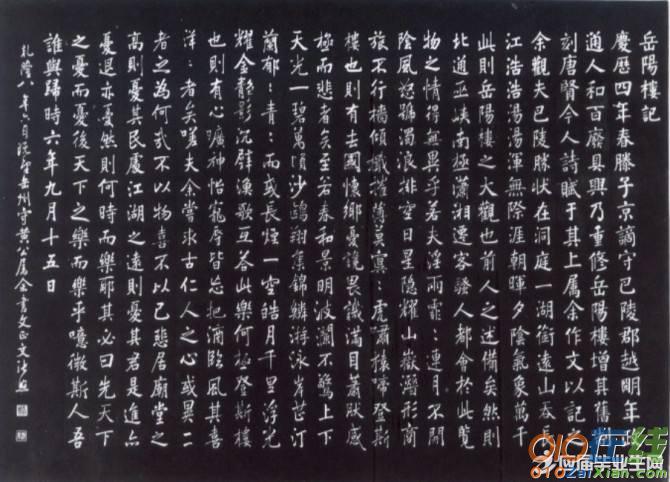 岳陽樓記
慶歷四年春滕子京謫守巴陵郡越明年政
通人和百廢具興乃重修岳陽樓增其舊制
刻唐賢今人詩賦于其上屬余作文以記之
余觀夫巴陵勝狀在洞庭一湖銜遠山吞長
江浩浩湯湯渾無際涯朝暉夕陰氣象萬千
此則岳陽樓之大觀也前人之述備矣然則
北通巫峽南極瀟湘遷客騷人都會於此覽
物之情得無異乎若夫淫雨霏:連月不開
陰風怒號濁浪排空日星隱耀山嶽潛形商
旅不行檣傾檝摧薄暮冥:虎嘯猿啼登斯
樓也則有去國懷鄉憂讒畏譏滿目蕭然感
極而悲者矣至若春和景明波瀾不驚上下
天光一碧萬頃沙鷗翔集錦鱗游泳岸芷汀
蘭郁:青:而或長煙一空皓月千里浮光
耀金靜影沉璧漁歌互答此樂何極登斯樓
也則有心曠神怡寵辱皆忘把酒臨風其喜
洋:者矣嗟夫余嘗求古仁人之心或異二
者之為何哉不以物喜不以己悲居廟堂之
高則憂其民處江湖之遠則憂其君是進亦
憂退亦憂然則何時而樂耶其必曰先天下
之憂而憂後天下之樂而樂乎噫微斯人吾
誰與歸時六年九月十五日
乾隆八年六月岳州守黃公屬余書文正文張照
应届毕业生网
010在线
010zaixian.com